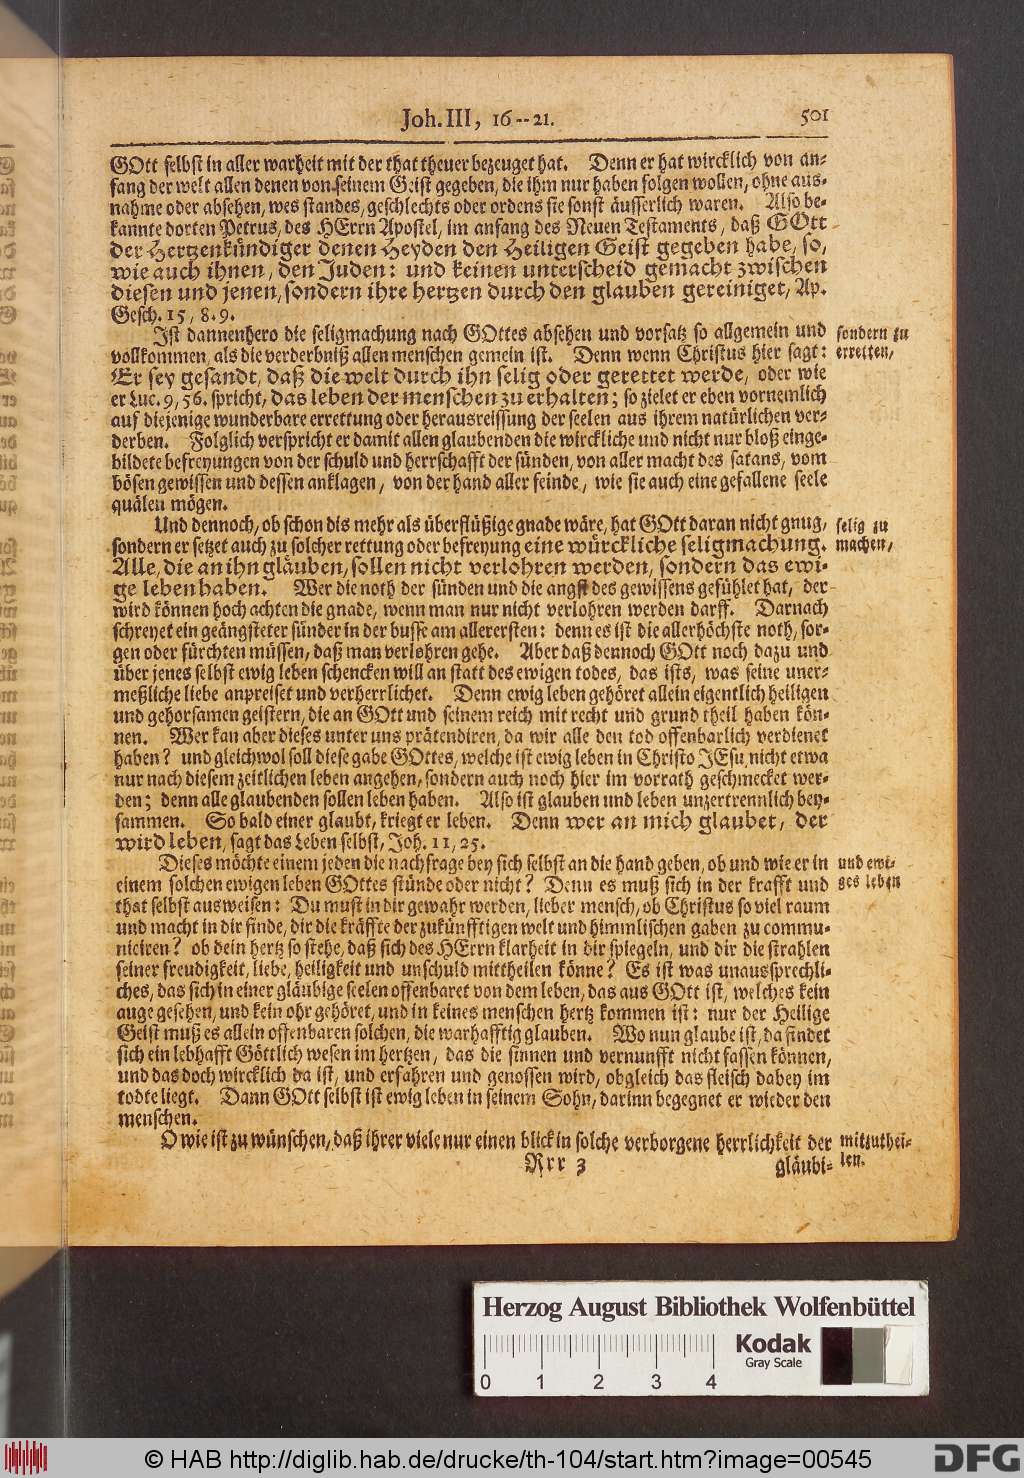 Joh. III, 16--21. 501
GOtt selbst in aller warheit mit der that theuer bezeuget hat. Denn er hat wircklich von an-
fang der welt allen denen von seinem Geist gegeben, die ihm nur haben folgen wollen, ohne aus-
nahme oder absehen, wes standes, geschlechts oder ordens sie sonst äusserlich waren. Also be-
kannte dorten Petrus, des HErrn Apostel, im anfang des Neuen Testaments, daß GOtt
der Hertzenkündiger denen Heyden den Heiligen Geist gegeben habe, so,
wie auch ihnen, den Juden: und keinen unterscheid gemacht zwischen
diesen und jenen, sondern ihre hertzen durch den glauben gereiniget, Ap.
Gesch. 15, 8. 9.
Ist dannenhero die seligmachung nach GOttes absehen und vorsatz so allgemein und sondern zu
vollkommen, als die verderbniß allen menschen gemein ist. Denn wenn Christus hier sagt: erretten,
Er sey gesandt, daß die welt durch ihn selig oder gerettet werde, oder wie
er Luc. 9, 56. spricht, das leben der menschen zu erhalten; so zielet er eben vornemlich
auf diejenige wunderbare errettung oder herausreissung der seelen aus ihrem natürlichen ver-
derben. Folglich verspricht er damit allen glaubenden die wirckliche und nicht nur bloß einge-
bildete befreyungen von der schuld und herrschafft der sünden, von aller macht des satans, vom
bösen gewissen und dessen anklagen, von der hand aller feinde, wie sie auch eine gefallene seele
quälen mögen.
Und dennoch, ob schon dis mehr als überflüßige gnade wäre, hat GOtt daran nicht gnug, selig zu
sondern er setzet auch zu solcher rettung oder befreyung eine würckliche seligmachung. machen,
Alle, die an ihn gläuben, sollen nicht verlohren werden, sondern das ewi-
ge leben haben. Wer die noth der sünden und die angst des gewissens gefühlet hat, der
wird können hoch achten die gnade, wenn man nur nicht verlohren werden darff. Darnach
schreyet ein geängsteter sünder in der busse am allerersten: denn es ist die allerhöchste noth, sor-
gen oder fürchten müssen, daß man verlohren gehe. Aber daß dennoch GOtt noch dazu und
über jenes selbst ewig leben schencken will an statt des ewigen todes, das ists, was seine uner-
meßliche liebe anpreiset und verherrlichet. Denn ewig leben gehöret allein eigentlich heiligen
und gehorsamen geistern, die an GOtt und seinem reich mit recht und grund theil haben kön-
nen. Wer kan aber dieses unter uns prätendiren, da wir alle den tod offenbarlich verdienet
haben? und gleichwol soll diese gabe GOttes, welche ist ewig leben in Christo JEsu, nicht etwa
nur nach diesem zeitlichen leben angehen, sondern auch noch hier im vorrath geschmecket wer-
den; denn alle glaubenden sollen leben haben. Also ist glauben und leben unzertrennlich bey-
sammen. So bald einer glaubt, kriegt er leben. Denn wer an mich glaubet, der
wird leben, sagt das Leben selbst, Joh. 11, 25.
Dieses möchte einem jeden die nachfrage bey sich selbst an die hand geben, ob und wie er in und ewi-
einem solchen ewigen leben GOttes stünde oder nicht? Denn es muß sich in der krafft und ges leben
that selbst ausweisen: Du must in dir gewahr werden, lieber mensch, ob Christus so viel raum
und macht in dir finde, dir die kräffte der zukünfftigen welt und himmlischen gaben zu commu-
niciren? ob dein hertz so stehe, daß sich des HErrn klarheit in dir spiegeln, und dir die strahlen
seiner freudigkeit, liebe, heiligkeit und unschuld mittheilen könne? Es ist was unaussprechli-
ches, das sich in einer gläubige seelen offenbaret von dem leben, das aus GOtt ist, welches kein
auge gesehen, und kein ohr gehöret, und in keines menschen hertz kommen ist: nur der Heilige
Geist muß es allein offenbaren solchen, die warhafftig glauben. Wo nun glaube ist, da findet
sich ein lebhafft Göttlich wesen im hertzen, das die sinnen und vernunfft nicht fassen können,
und das doch wircklich da ist, und erfahren und genossen wird, obgleich das fleisch dabey im
todte liegt. Dann GOtt selbst ist ewig leben in seinem Sohn, darinn begegnet er wieder den
menschen.
O wie ist zu wünschen, daß ihrer viele nur einen blick in solche verborgene herrlichkeit der mitzuthei-
Rrr 3 gläubi- len.
Herzog August Bibliothek Wolfenbüttel
Kodak
Gray Scale
0 1 2 3 4
© HAB http://diglib.hab.de/drucke/th-104/start.htm?image=00545
DFG